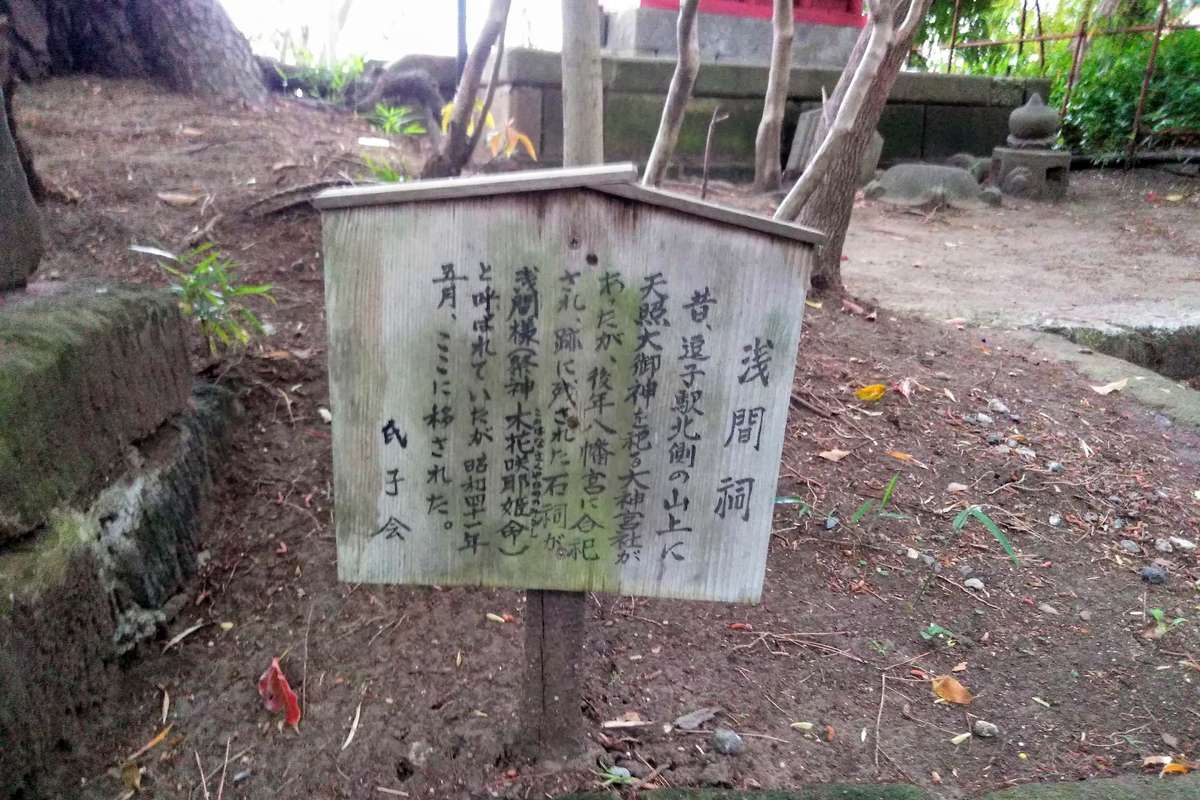 浅間祠
昔、逗子駅北側の山上に
天照大御神を祀る大神宮社が
あったが、後年八幡宮に合祀
され、跡に残された石祠が
浅間様（祭神 木花咲耶姫命）
と呼ばれていたが昭和四一年
五月、ここに移された。
氏子会